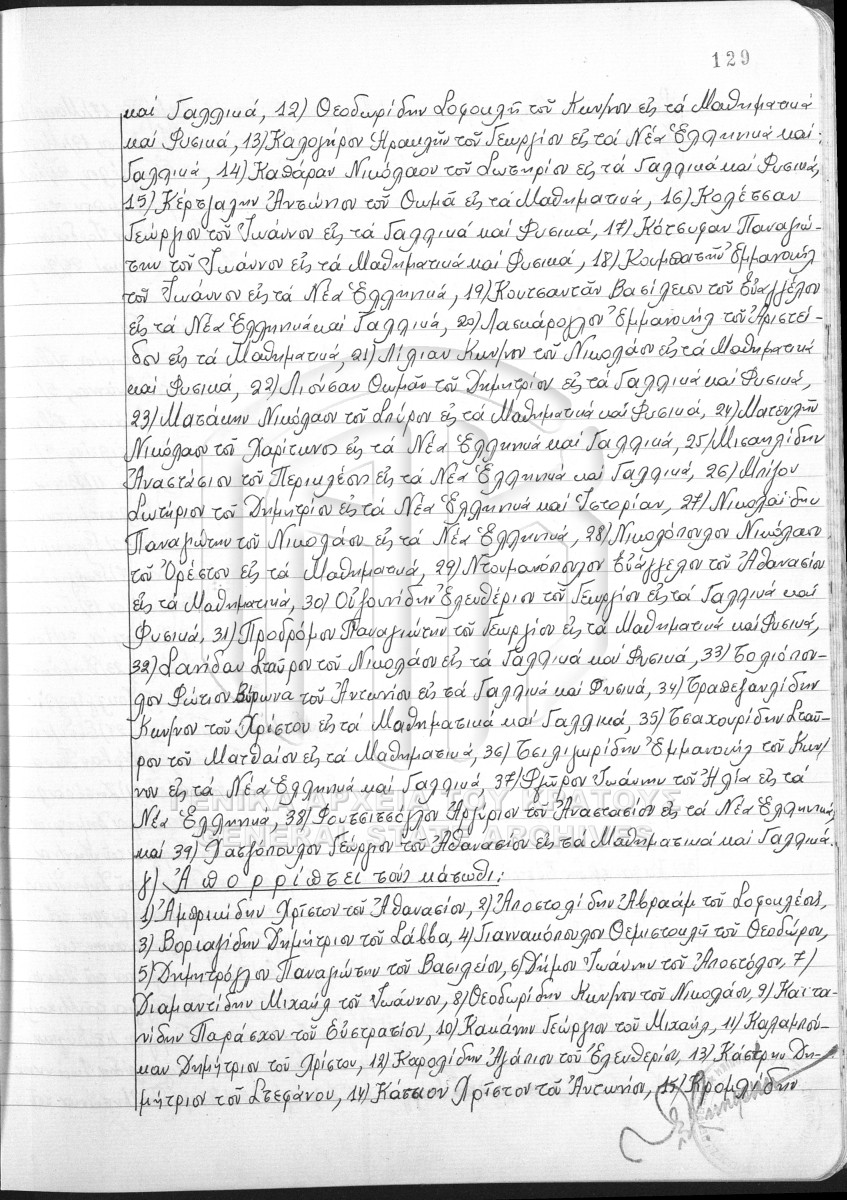 129
καί Γαλλικά, 12) Θεοδωρίδην Σοφοκλῆ τοῦ Κων/νου εἰς τά Μαθηματικά
καί Φυσικά, 13) Καλογῆρον Ἡρακλῆν τοῦ Γεωργίου εἰς τά Νέα Ἑλληνικά καί
Γαλλικά, 14) Καθάραν Νικόλαον τοῦ Σωτηρίου εἰς τά Γαλλικά καί Φυσικά,
15) Κέρτσαλην Ἀντώνιον τοῦ Θωμᾶ εἰς τά Μαθηματικά, 16) Κολέτσαν
Γεώργιον τοῦ Ἰωάννου εἰς τά Γαλλικά καί Φυσικά, 17) Κότσυφαν Παναγιώ-
την τοῦ Ἰωάννου εἰς τά Μαθηματικά καί Φυσικά, 18) Κουμπατσῆν Ἐμμανουήλ
τοῦ Ἰωάννου εἰς τά Νέα Ἑλληνικά, 19) Κουτσαντᾶν Βασίλειον τοῦ Εὐαγγέλου
εἰς τά Νέα Ἑλληνικά καί Γαλλικά, 20) Λασκάρογλου Ἐμμανουήλ τοῦ Ἀριστεί-
δου εἰς τά Μαθηματικά, 21) Λίλιαν Κων/νον τοῦ Νικολάου εἰς τά Μαθηματικά
καί Φυσικά, 22) Λιούσαν Θωμᾶν τοῦ Δημητρίου εἰς τά Γαλλικά καί Φυσικά,
23) Ματσάκην Νικόλαον τοῦ Σπύρου εἰς τά Μαθηματικά καί Φυσικά, 24) Ματενλῆν
Νικόλαον τοῦ Χαρίτωνος εἰς τά Νέα Ἑλληνικά καί Γαλλικά, 25) Μισαηλίδην
Ἀναστάσιον τοῦ Περικλέους εἰς τά Νέα Ἑλληνικά καί Γαλλικά, 26) Μπίζον
Σωτήριον τοῦ Δημητρίου εἰς τά Νέα Ἑλληνικά καί Ἱστορίαν, 27) Νικολαΐδην
Παναγιώτην τοῦ Νικολάου εἰς τά Νέα Ἑλληνικά, 28) Νικολόπουλον Νικόλαον
τοῦ Ὀρέστου εἰς τά Μαθηματικά, 29) Ντουμανόπουλον Εὐάγγελον τοῦ Ἀθανασίου
εἰς τά Μαθηματικά, 30) Οὐζουνίδην Ἐλευθέριον τοῦ Γεωργίου εἰς τά Γαλλικά καί
Φυσικά, 31) Προδρόμου Παναγιώτην τοῦ Γεωργίου εἰς τά Μαθηματικά καί Φυσικά,
32) Σανίδαν Σταῦρον τοῦ Νικολάου εἰς τά Γαλλικά καί Φυσικά, 33) Τολιόπου-
λον Φώτιον Βύρωνα τοῦ Ἀντωνίου εἰς τά Γαλλικά καί Φυσικά, 34) Τραπεζανλίδην
Κων/νον τοῦ Χρίστου εἰς τά Μαθηματικά καί Γαλλικά, 35) Τσαχουρίδην Σταῦ-
ρον τοῦ Ματθαίου εἰς τά Μαθηματικά, 36) Τσιλιγκαρίδην Ἐμμανουήλ τοῦ Κων/
νου εἰς τά Νέα Ἑλληνικά καί Γαλλικά, 37) Φλῶρον Ἰωάννην τοῦ Ἠλία εἰς τά
Νέα Ἑλληνικά, 38) Φουτσιτσόγλου Ἀργύριον τοῦ Ἀναστασίου εἰς τά Νέα Ἑλληνικά
καί 39) Χατζόπουλον Γεώργιον τοῦ Ἀθανασίου εἰς τά Μαθηματικά καί Γαλλικά.
ΓΕΝΙΚΑ ΑΡΧΕΙΑ ΤΟΥ ΚΡΑΤΟΥΣ
GENERAL STATE ARCHIVES
γ) Ἀπορρίπτει τούς κάτωθι:
1) Ἀμπρικίδην Χρῖστον τοῦ Ἀθανασίου, 2) Ἀποστολίδην Ἀβραάμ τοῦ Σοφοκλέους,
3) Βοριαζίδην Δημήτριον τοῦ Σάββα, 4) Γιαννακόπουλον Θεμιστοκλῆ τοῦ Θεοδώρου,
5) Δημητρόγλου Παναγιώτην τοῦ Βασιλείου, 6) Δήμου Ἰωάννην τοῦ Ἀποστόλου, 7)
Διαμαντίδην Μιχαήλ τοῦ Ἰωάννου, 8) Θεοδωρίδην Κων/νον τοῦ Νικολάου, 9) Καϊτα-
νίδην Παράσχον τοῦ Εὐστρατίου, 10) Κακάνην Γεώργιον τοῦ Μιχαήλ, 11) Καλαμπού-
καν Δημήτριον τοῦ Χρίστου, 12) Καρολίδην Ἀγάπιον τοῦ Ἐλευθερίου, 13) Κάστρην Δη-
μήτριον τοῦ Στεφάνου, 14) Κάτσιον Χρῖστον τοῦ Ἀντωνίου, 15) Κρομλίδην